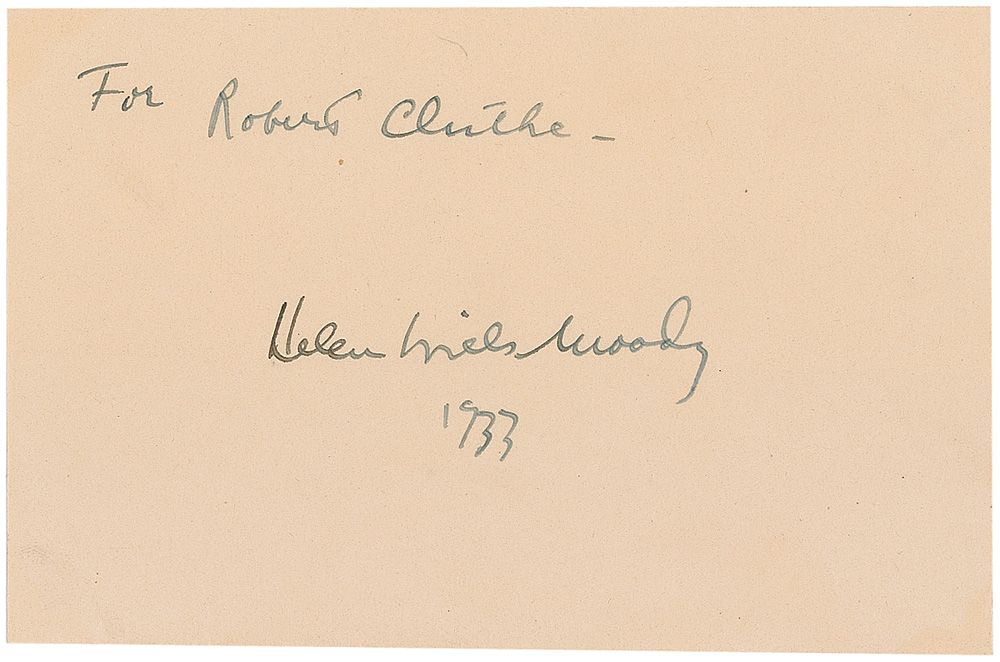 For Robert Cluthe -
Helen Wills Moody
1933